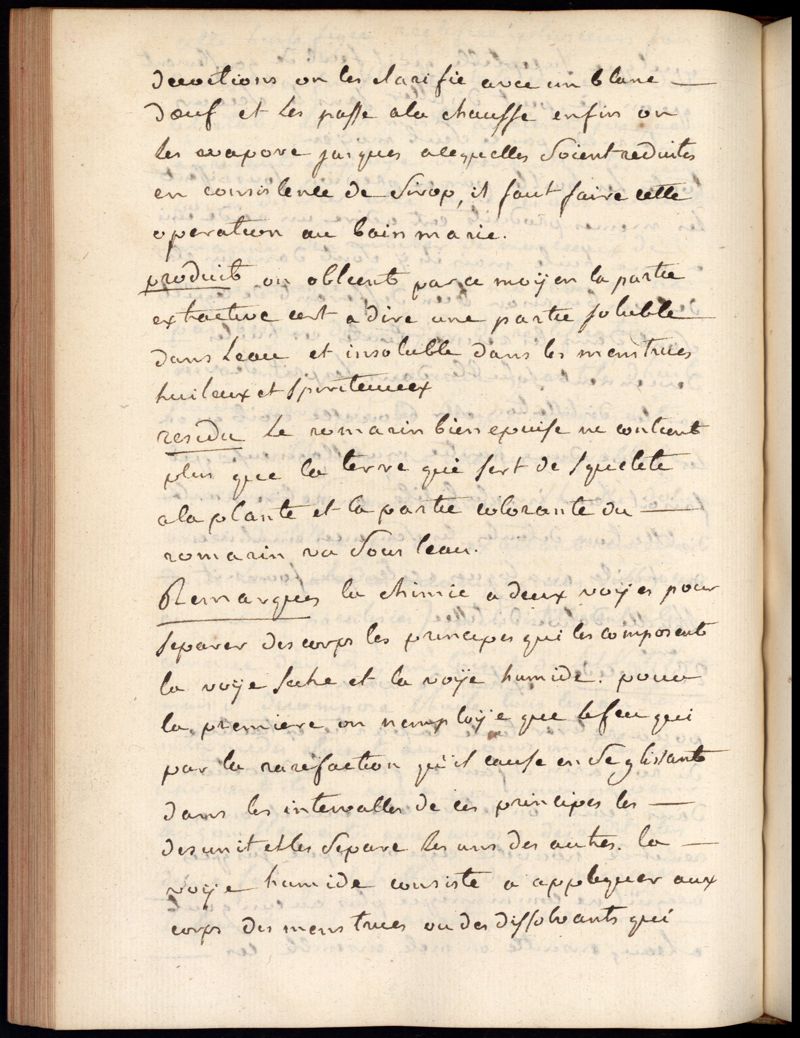 decoctions on les clarifie avec un blanc —
dœuf et les passe ala chausse enfin on
les evapore jusques acequelles soient reduites
en consistence de Sirop, il faut faire cette
operation au bain marie.
produit on obtient par ce moÿen la partie
extractive cest adire une partie soluble
dans leau et insoluble dans les menstrues
huileux et spiritueux
residu Le romarin bien epuise ne contient
plus que la terre qui sert de squelete
ala plante et la partie colorante du —
romarin va sous leau.
Remarques la chimie a deux voÿes pour
separer des corps les principes qui les composent
la voÿe seche et la voÿe humide. pour
la premiere on nemploÿe que lefeu qui
par la rarefaction qu'il cause en se glissant
dans les intervalles de ces principes les —
desunit et les separe les uns des autres. la —
voÿe humide consiste a appliquer aux
corps des menstrues ou des dissolvants qui